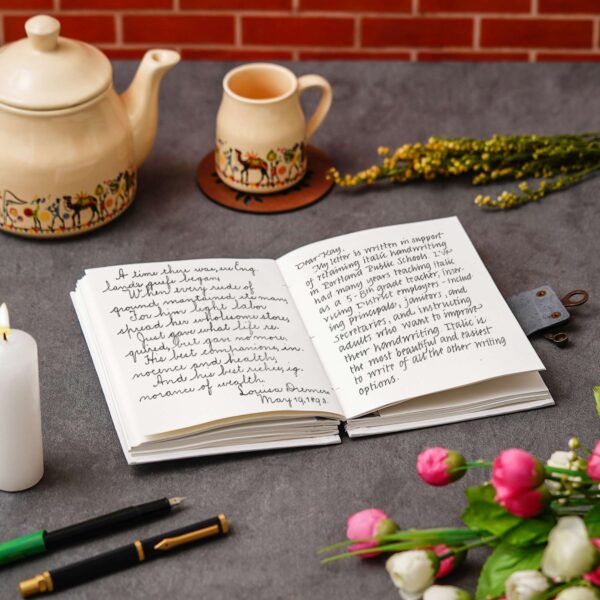 A time there was, ere Eng-
lands griefs began,
When every rood of
ground maintained its man,
For him light labor
spread her wholesome store,
Just gave what life re-
quired, but gave no more,
His best companions, in-
nocence and health,
And his best riches, ig-
norance of wealth.
Louisa
May 19, 1893.
Dear Kay,
My letter is written in support
of retaining italic handwriting
in Portland Public Schools. I've
had many years teaching italic
as a 5-8th grade teacher, inser-
vicing District employees - includ
ing principals, janitors, and
secretaries, and instructing
adults who want to improve
their handwriting Italic is
the most beautiful and easiest
to write of all the other writing
options.